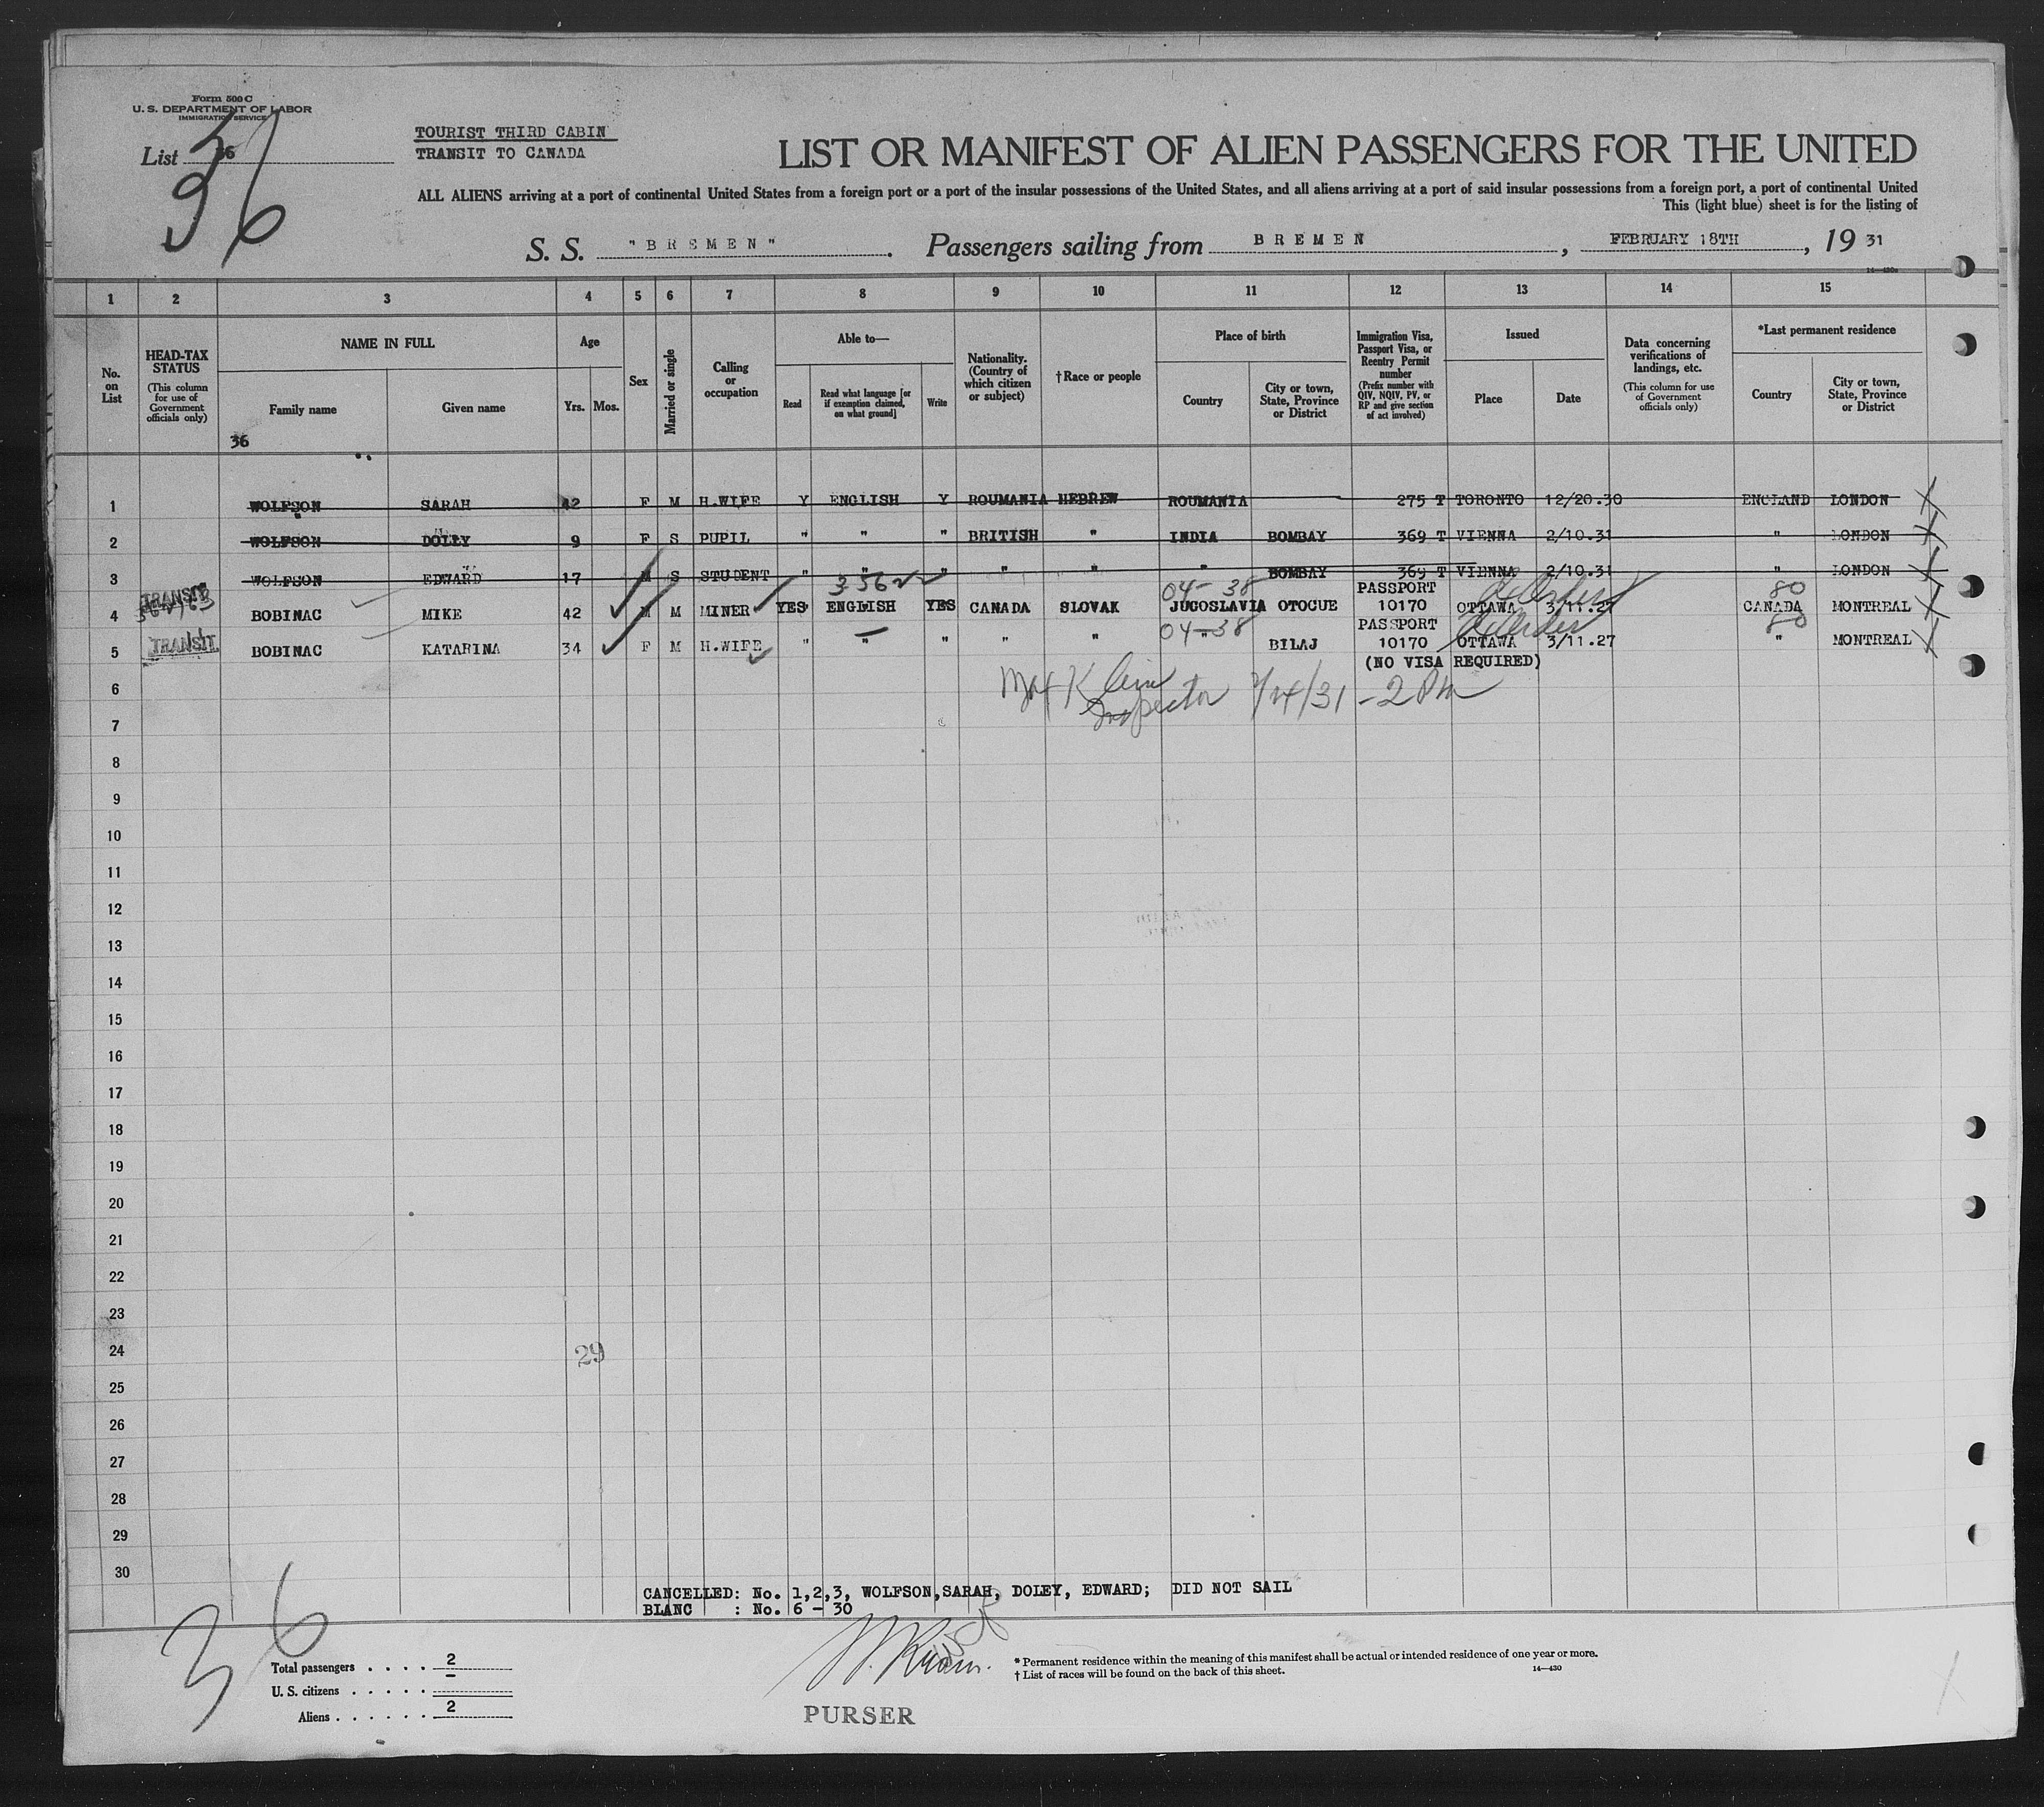 Form 500 C
U. S. DEPARTMENT OF LABOR
IMMIGRATION SERVICE
List 36
36
TOURIST THIRD CABIN
TRANSIT TO CANADA
LIST OR MANIFEST OF ALIEN PASSENGERS FOR THE UNITED
ALL ALIENS arriving at a port of continental United States from a foreign port or a port of the insular possessions of the United States, and all aliens arriving at a port of said insular possessions from a foreign port, a port of continental United
This (light blue) sheet is for the listing of
S. S. "BREMEN". Passengers sailing from BREMEN, FEBRUARY 18TH, 19 31
1 2 3 4 5 6 7 8 9 10 11 12 13 14 15
No. on List
HEAD-TAX STATUS (This column for use of Government officials only)
NAME IN FULL
Family name
Given name
36
Age
Yrs. Mos.
Sex
Married or single
Calling or occupation
Able to—
Read
Read what language [or if exemption claimed, on what ground]
Write
Nationality. (Country of which citizen or subject)
†Race or people
Place of birth
Country
City or town, State, Province or District
Immigration Visa, Passport Visa, or Reentry Permit number (Prefix number with QIV, NQIV, PV, or RP and give section of act involved)
Issued
Place
Date
Data concerning verifications of landings, etc. (This column for use of Government officials only)
*Last permanent residence
Country
City or town, State, Province or District
1 WOLFSON SARAH 42 F M H.WIFE Y ENGLISH Y ROUMANIA HEBREW ROUMANIA 275 T TORONTO 12/20.30 ENGLAND LONDON
2 WOLFSON DOLLY 9 F S PUPIL " " " BRITISH " INDIA BOMBAY 369 T VIENNA 2/10.31 " LONDON
3 WOLFSON EDWARD 17 M S STUDENT " " " " " " BOMBAY 369 T VIENNA 2/10.31 " LONDON
TRANSIT 356 04-38 PASSPORT 80
4 BOBINAC MIKE 42 M M MINER YES ENGLISH YES CANADA SLOVAK JUGOSLAVIA OTOCUE 10170 OTTAWA 3/11.27 CANADA MONTREAL
TRANSIT 04-38 PASSPORT 80
5 BOBINAC KATARINA 34 F M H.WIFE " " " " " " BILAJ 10170 OTTAWA 3/11.27 " MONTREAL
(NO VISA REQUIRED)
6
Inspector 2/24/31 - 2 PM
7
8
9
10
11
12
13
14
15
16
17
18
19
20
21
22
23
24 29
25
26
27
28
29
30
CANCELLED: No. 1,2,3, WOLFSON,SARAH, DOLEY, EDWARD; DID NOT SAIL
BLANC : No. 6 - 30
36
Total passengers . . . . 2
U. S. citizens . . . . . —
Aliens . . . . . . 2
PURSER
* Permanent residence within the meaning of this manifest shall be actual or intended residence of one year or more.
† List of races will be found on the back of this sheet.
14—430